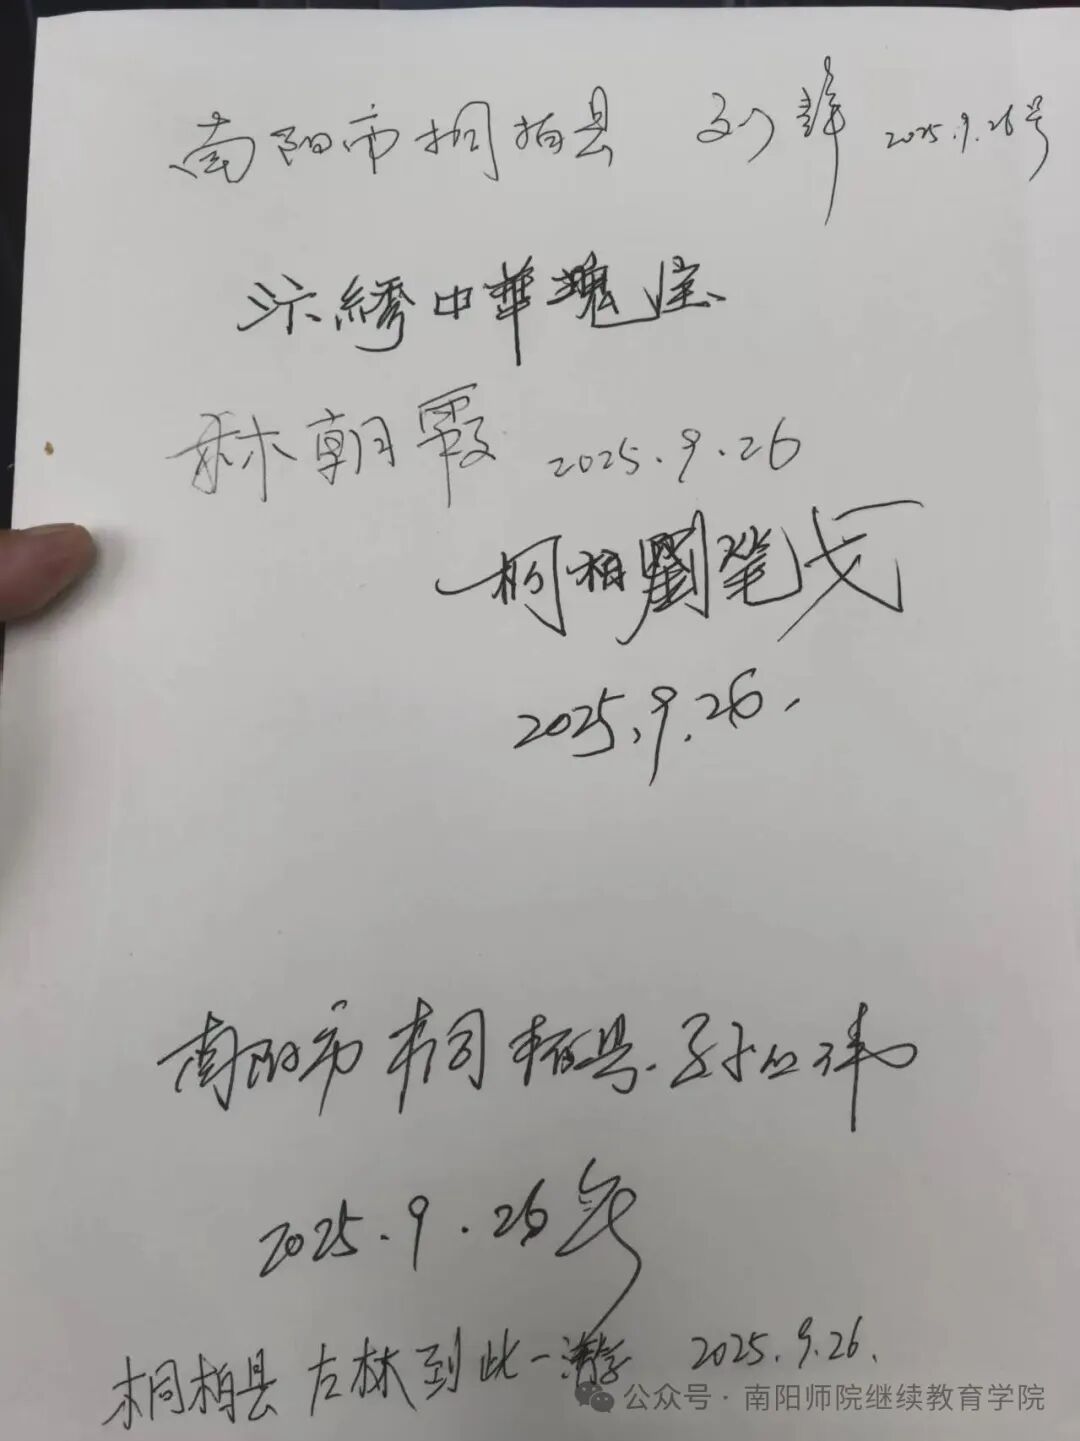 南阳市桐柏县 刘辉 2025.9.26号
汴繡中華瑰宝
林朝霞 2025.9.26
桐柏劉笔戈
2025.9.26.
南阳市桐柏县.孙仁祎
2025.9.26号
桐柏县 左林到此一游 2025.9.26.
公众号·南阳师院继续教育学院